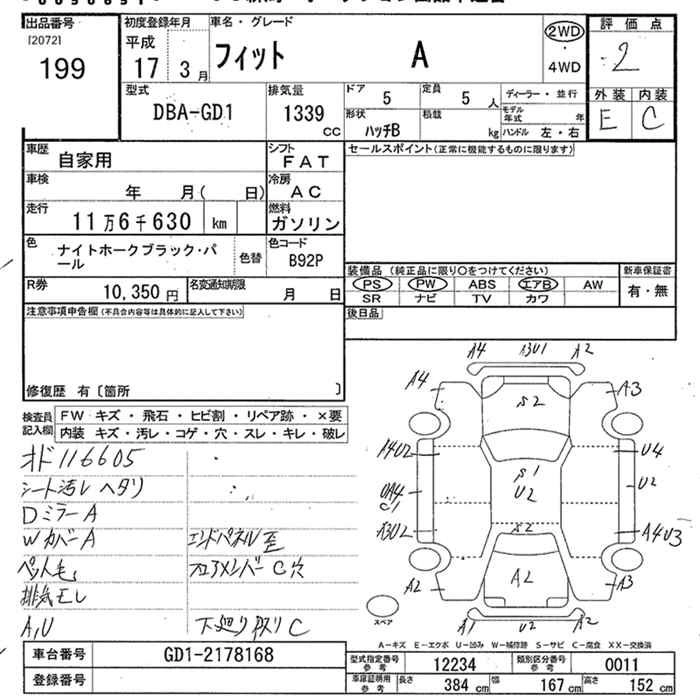 出品番号
[2072]
199
初度登録年月
平成
17 3月
車名・グレード
フィット A
2WD
4WD
評価点
2
外装 内装
E C
型式
DBA-GD1
排気量
1339
CC
ドア
5
定員
5 人
形状
ハッチB
積載
kg
ディーラー・並行
モデル年式 年
ハンドル 左・右
車歴
自家用
シフト
FAT
セールスポイント(正常に機能するものに限ります)
車検
年 月( 日)
冷房
AC
走行
11万6千630 km
燃料
ガソリン
色
ナイトホークブラック・パ
ール
色替
色コード
B92P
装備品 (純正品に限り○をつけてください)
PS PW ABS エアB AW
SR ナビ TV カワ
新車保証書
有・無
R券
10,350 円
名変通知期限
月 日
後日品
注意事項申告欄(不具合内容等は具体的に記入して下さい)
修復歴 有〔箇所 〕
検査員
記入欄
FW キズ・飛石・ヒビ割・リペア跡・×要
内装 キズ・汚レ・コゲ・穴・スレ・キレ・破レ
オド116605
シート汚レ ヘタリ
Dミラー A
Wカバー A
エンドパネル歪
ペット毛
フロアメンバー C穴
排気モレ
A,U
下廻りサビ C
A4 A3U1 A2
A4 S2 A3
A4U2 S1 U4
UA4 U2 U2
C1
A3U2 S2 A4U3
A2 A2 A3
A1 U2 A2
スペア
A-キズ E-エクボ U-凹み W-補修跡 S-サビ C-腐食 XX-交換済
車台番号
GD1-2178168
登録番号
型式指定番号
参考
12234
類別区分番号
参考
0011
車庫証明用
参考
長さ 384 cm
幅 167 cm
高さ 152 cm